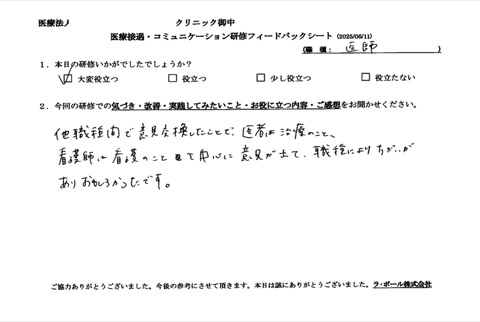 医療法人 クリニック御中
医療接遇・コミュニケーション研修フィードバックシート (2025/06/11)
(職 種: 医師 )
1．本日の研修いかがでしたでしょうか？
☑ 大変役立つ □ 役立つ □ 少し役立つ □ 役立たない
2．今回の研修での気づき・改善・実践してみたいこと・お役に立つ内容・ご感想をお聞かせください。
他職種間で意見交換したことで、医者は治療のこと、
看護師は看護のこと 中心に意見が出て、職種によりちがいが
ありおもしろかったです。
ご協力ありがとうございました。今後の参考にさせて頂きます。本日は誠にありがとうございました。ラ・ポール株式会社